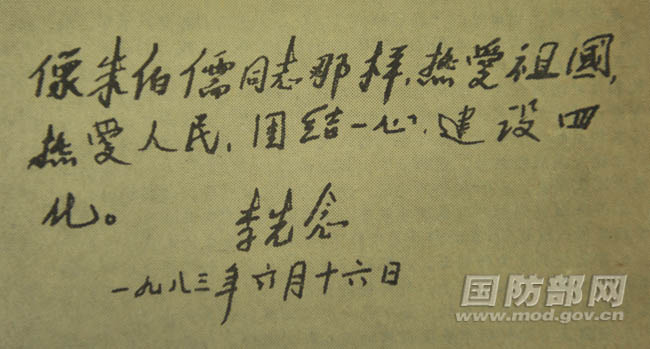 像朱伯儒同志那样,热愛祖國,
热愛人民,团结一心,建设四
化。 李先念
一九八三年六月十六日
国防部网
www.mod.gov.cn